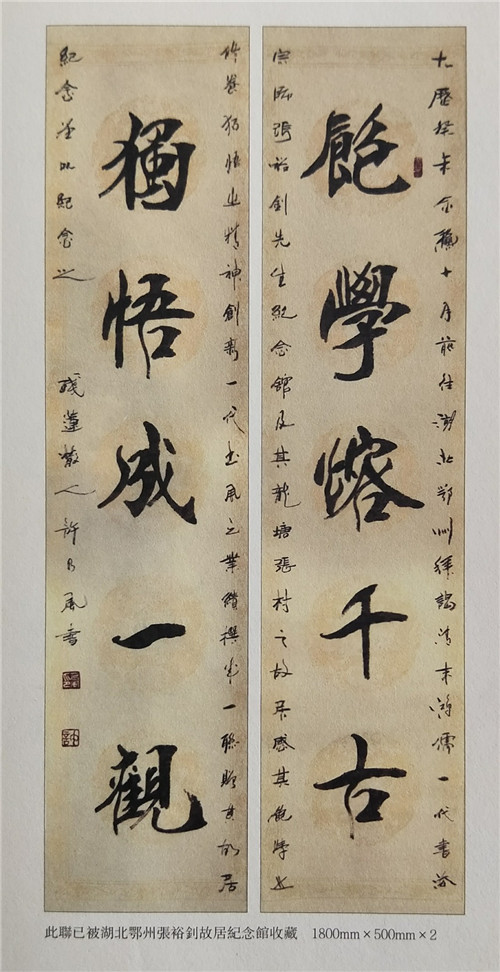 曆癸未十月前往湖北鄂州拜謁清末鴻儒一代書法
飽學熔千古
宗師張裕釗先生紀念館及其龍塘張村之故居感其飽學
獨悟之精神創新一代書風之業績撰成一聯贈其故居
獨悟成一觀
紀念並以紀念之 散人許書
此聯已被湖北鄂州張裕釗故居紀念館收藏 1800mm×500mm×2